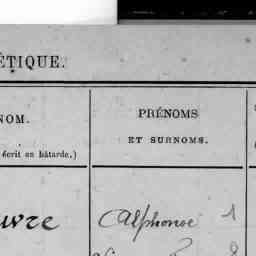 ÉTIQUE.
NOM.
écrit en bâtarde.)
PRÉNOMS
ET SURNOMS.
uvre
Alphonse 1